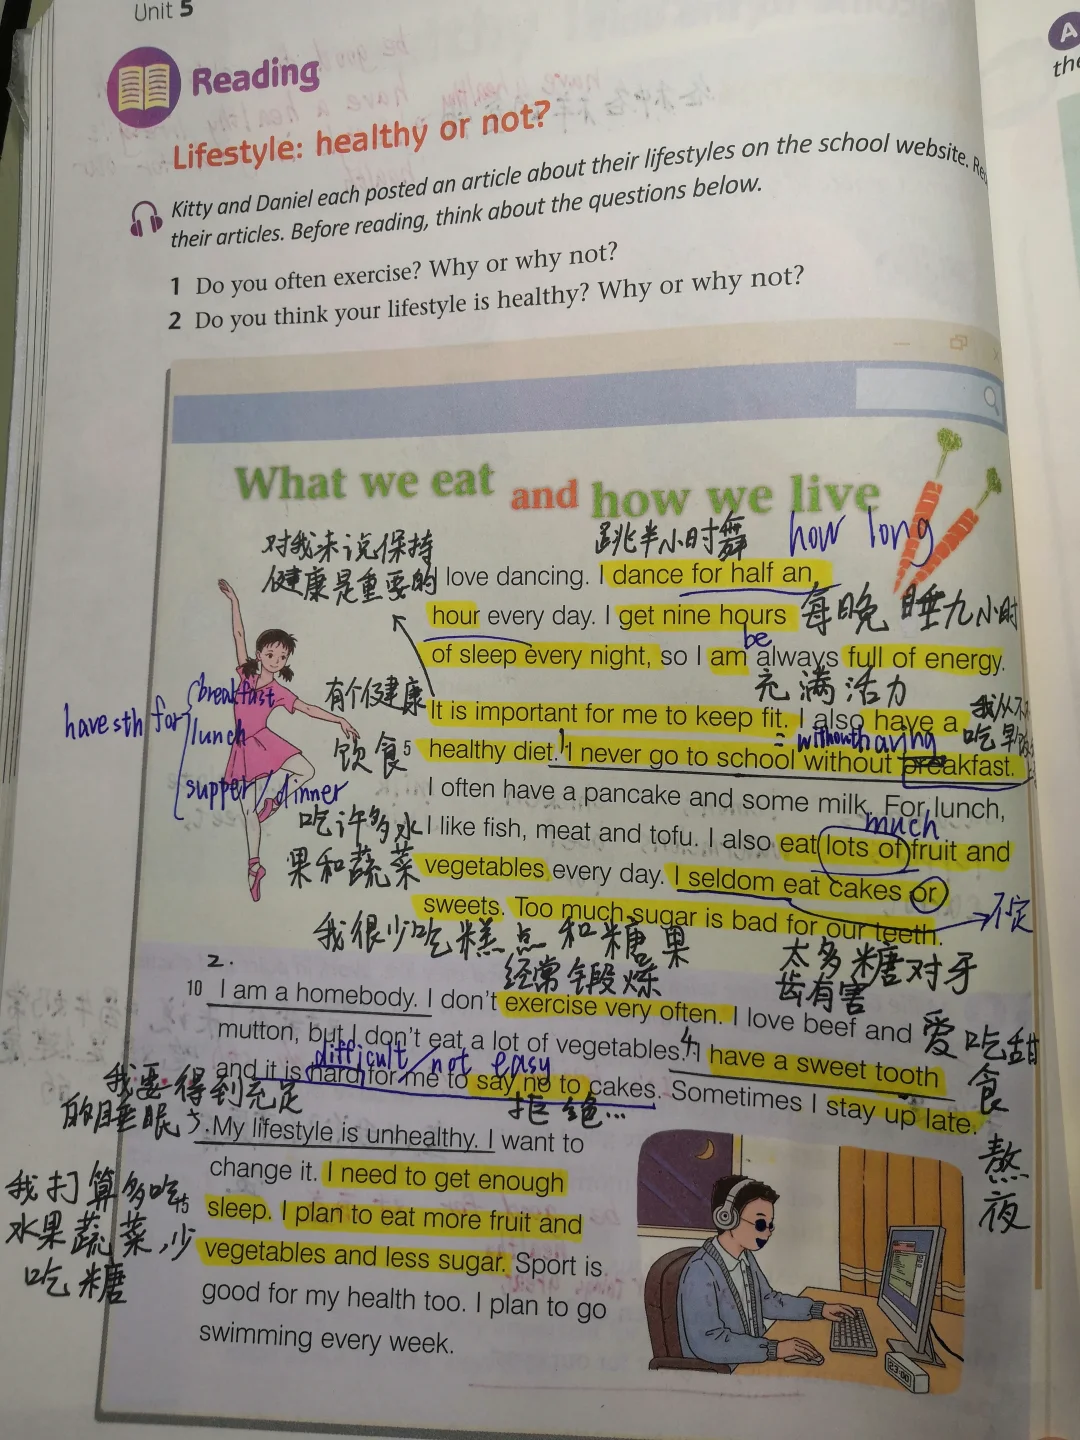 Unit 5
Reading
Lifestyle: healthy or not?
Kitty and Daniel each posted an article about their lifestyles on the school website.
their articles. Before reading, think about the questions below.
1 Do you often exercise? Why or why not?
2 Do you think your lifestyle is healthy? Why or why not?
What we eat and how we live
对我来说保持
健康是重要的
跳半小时舞
how long
I love dancing. I dance for half an
hour every day. I get nine hours
每晚睡九小时
be
of sleep every night, so I am always full of energy.
充满活力
有个健康
饮食
It is important for me to keep fit. I also have a
我从不
吃早饭
without having
5 healthy diet. I never go to school without breakfast.
have sth for
breakfast
lunch
supper/dinner
I often have a pancake and some milk. For lunch,
much
吃许多水
果和蔬菜
I like fish, meat and tofu. I also eat lots of fruit and
vegetables every day. I seldom eat cakes or
sweets. Too much sugar is bad for our teeth.
否定
我很少吃糕点和糖果
太多糖对牙
齿有害
经常锻炼
2.
10 I am a homebody. I don't exercise very often. I love beef and
爱吃甜
食
mutton, but I don't eat a lot of vegetables. I have a sweet tooth
4.
difficult/not easy
and it is hard for me to say no to cakes. Sometimes I stay up late.
拒绝...
熬
夜
我要得到充足
的睡眠
5.
My lifestyle is unhealthy. I want to
change it. I need to get enough
我打算多吃
水果蔬菜,少
吃糖
15 sleep. I plan to eat more fruit and
vegetables and less sugar. Sport is
good for my health too. I plan to go
swimming every week.
23:00
A
the